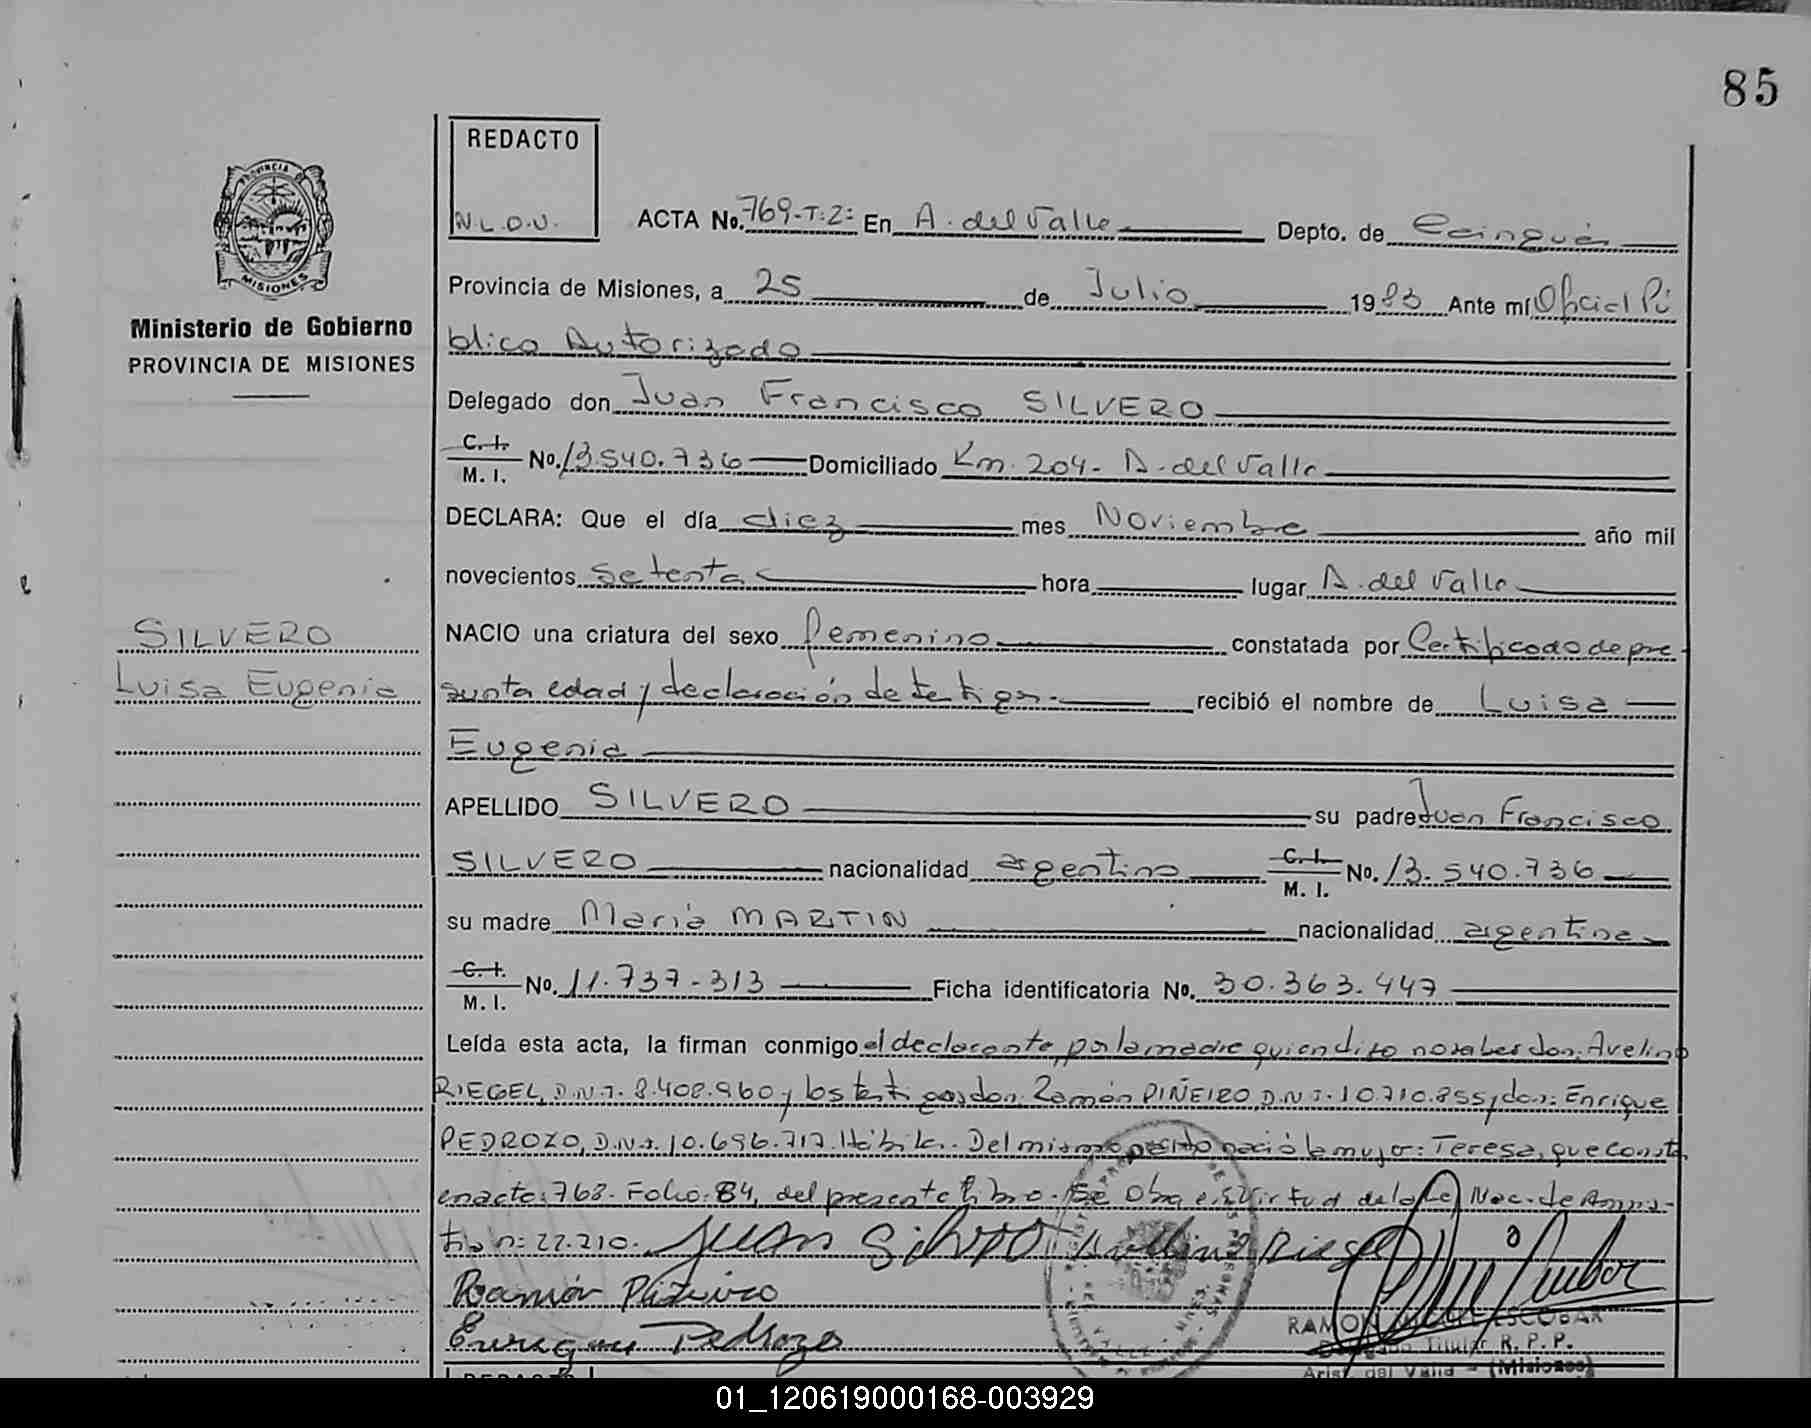 85
REDACTO
N.L.O.V.
ACTA No. 769-T:2: En A. del Valle Depto. de Cainguás
PROVINCIA DE
MISIONES
Provincia de Misiones, a 25 de Julio 1983 Ante mí Oficial Pú
Ministerio de Gobierno
PROVINCIA DE MISIONES
blico Autorizado
Delegado don Juan Francisco SILVERO
C. I.
M. I. No. 13.540.736 Domiciliado Km. 204- A. del Valle
DECLARA: Que el día diez mes Noviembre año mil
novecientos setenta hora lugar A. del Valle
SILVERO
Luisa Eugenia
NACIO una criatura del sexo femenino constatada por Certificado de pre-
sunta edad y declaración de testigos.- recibió el nombre de Luisa
Eugenia
APELLIDO SILVERO su padre Juan Francisco
SILVERO nacionalidad argentino C. I. M. I. No. 13.540.736
su madre María MARTIN nacionalidad argentina
C. I.
M. I. No. 11.737.313 Ficha identificatoria No. 30.363.447
Leída esta acta, la firman conmigo el declarante, por la madre quien dijo no saber don: Avelino
RIEGEL, D.N.I. 8.408.960 y los testigos don. Ramón PIÑEIRO, D.N.I. 10.710.855 y don: Enrique
PEDROZO, D.N.I. 10.696.717. Hábiles. Del mismo parto nació la mujer: Teresa, que consta
en acta: 768. Folio: 84, del presente libro. Se obra en virtud de la Ley Nac. de Amnis-
tía n: 22.210. Juan Silvero Avelino Riegel
Ramón Piñeiro
Enrique Pedrozo
RAMON ESCOBAR
Delegado Titular R. P. P.
Arist. del Valle - (Misiones)
REDACTO
01_120619000168-003929